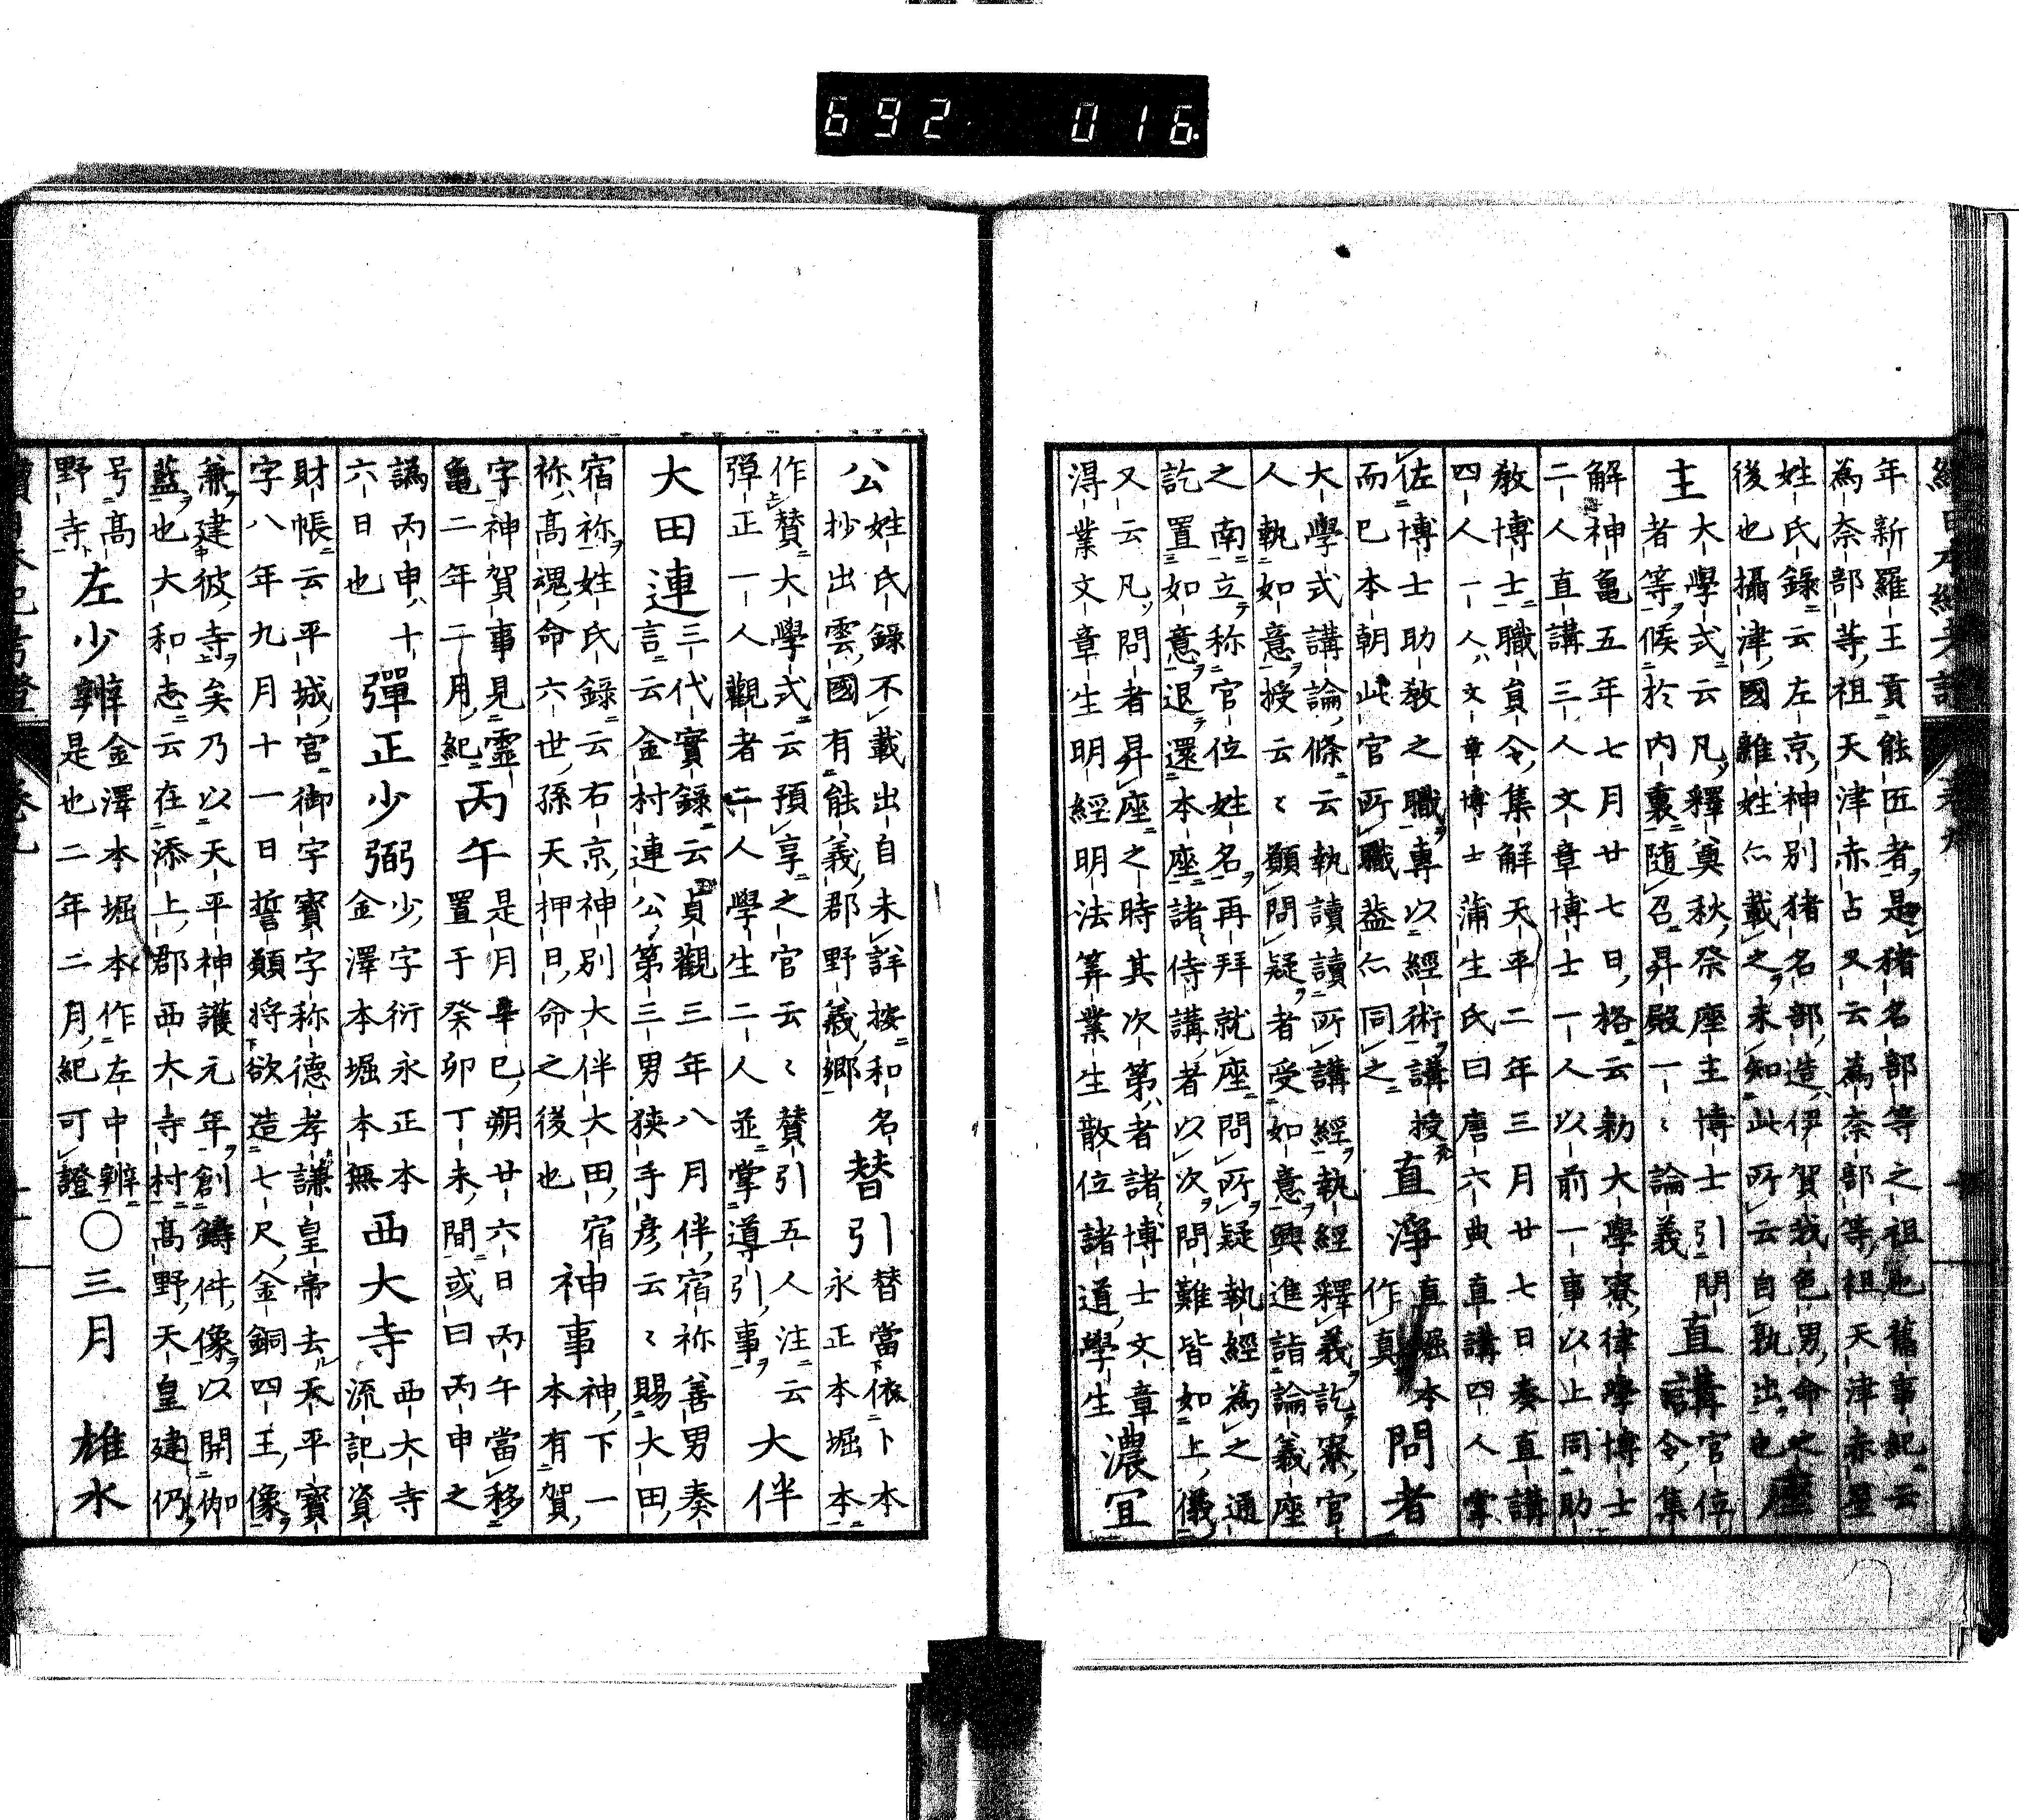 年新羅王貢能匠者是猪名部等之祖也舊事紀云
為奈部等祖天津赤占又云為奈部等祖天津赤星
姓氏錄云左京神別猪名部造伊賀我色男命之
後也攝津國雜姓亦載之未知此所云自孰出也
座
主
大學式云凡釋奠秋祭座主博士引問
者等候於内裏随召昇殿一〻論義
直講
官位
令集
解神亀五年七月廿七日格云勅大學寮律學博士
二人直講三人文章博士一人以前一事以上同助
教博士職員令集解天平二年三月廿七日奏直講
四人一人文章博士蒲生氏曰唐六典直講四人掌
佐博士助教之職專以經術講授
而已本朝此官所職益亦同之
直淨
直堀本
作真
問者
大學式講論條云執讀讀所講經執經釋義訖寮官
人執如意授云〻願問疑者受如意興進詣論義座
之南立称官位姓名再拜就座問所疑執經為之通
訖置如意退還本座諸侍講者以次問難皆如上儀
又云凡問者昇座之時其次第者諸博士文章
得業文章生明經明法筭業生散位諸道學生
濃宜
公
姓氏錄不載出自未詳按和名
抄出雲國有能義郡野義郷
替引
替當依卜本
永正本堀本
作賛大學式云預享之官云〻賛引五人注云
彈正一人觀者二人學生二人並掌導引事
大伴
大田連
三代實録云貞觀三年八月伴宿祢善男奏
言云金村連公第三男狭手彦云〻賜大田
宿祢姓氏錄云右京神別大伴大田宿
祢高魂命六世孫天押日命之後也
神事
神下一
本有賀
字神賀事見霊
亀二年二月紀
丙午
是月辛巳朔廿六日丙午當移
置于癸卯丁未間或曰丙申之
譌丙申十
六日也
彈正少弼
少字衍永正本
金澤本堀本無
西大寺
西大寺
流記資
財帳云平城宮御宇寳字称德孝謙皇帝去天平寳
字八年九月十一日誓願将欲造七尺金銅四王像
兼建彼寺矣乃以天平神護元年創鑄件像以開伽
藍也大和志云在添上郡西大寺村高野天皇建仍
号高
野寺
左少辨
金澤本堀本作左中辨
是也二年二月紀可證
○三月
雄水
692 016